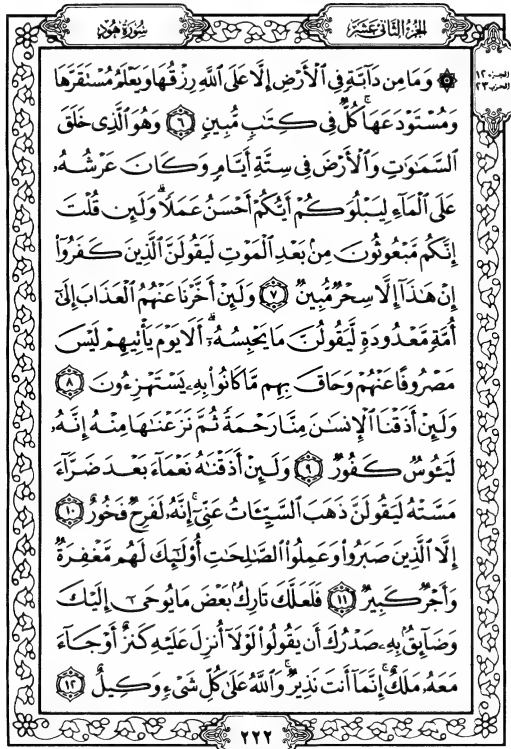 سُورَةُ هُودٍ
الجُزْءُ الثَّانِي عَشَرَ
الجزء ١٢
الحزب ٢٣
۞ وَمَا مِن دَآبَّةٍ فِي ٱلْأَرْضِ إِلَّا عَلَى ٱللَّهِ رِزْقُهَا وَيَعْلَمُ مُسْتَقَرَّهَا
وَمُسْتَوْدَعَهَاۚ كُلٌّ فِي كِتَٰبٍ مُّبِينٍ ٦ وَهُوَ ٱلَّذِي خَلَقَ
ٱلسَّمَٰوَٰتِ وَٱلْأَرْضَ فِي سِتَّةِ أَيَّامٍ وَكَانَ عَرْشُهُۥ
عَلَى ٱلْمَآءِ لِيَبْلُوَكُمْ أَيُّكُمْ أَحْسَنُ عَمَلًاۗ وَلَئِن قُلْتَ
إِنَّكُم مَّبْعُوثُونَ مِنۢ بَعْدِ ٱلْمَوْتِ لَيَقُولَنَّ ٱلَّذِينَ كَفَرُوٓا۟
إِنْ هَٰذَآ إِلَّا سِحْرٌ مُّبِينٌ ٧ وَلَئِنْ أَخَّرْنَا عَنْهُمُ ٱلْعَذَابَ إِلَىٰٓ
أُمَّةٍ مَّعْدُودَةٍ لَّيَقُولُنَّ مَا يَحْبِسُهُۥٓۗ أَلَا يَوْمَ يَأْتِيهِمْ لَيْسَ
مَصْرُوفًا عَنْهُمْ وَحَاقَ بِهِم مَّا كَانُوا۟ بِهِۦ يَسْتَهْزِءُونَ ٨
وَلَئِنْ أَذَقْنَا ٱلْإِنسَٰنَ مِنَّا رَحْمَةً ثُمَّ نَزَعْنَٰهَا مِنْهُ إِنَّهُۥ
لَيَـُٔوسٌ كَفُورٌ ٩ وَلَئِنْ أَذَقْنَٰهُ نَعْمَآءَ بَعْدَ ضَرَّآءَ
مَسَّتْهُ لَيَقُولَنَّ ذَهَبَ ٱلسَّيِّـَٔاتُ عَنِّيٓۚ إِنَّهُۥ لَفَرِحٌ فَخُورٌ ١٠
إِلَّا ٱلَّذِينَ صَبَرُوا۟ وَعَمِلُوا۟ ٱلصَّٰلِحَٰتِ أُو۟لَٰٓئِكَ لَهُم مَّغْفِرَةٌ
وَأَجْرٌ كَبِيرٌ ١١ فَلَعَلَّكَ تَارِكٌۢ بَعْضَ مَا يُوحَىٰٓ إِلَيْكَ
وَضَآئِقٌۢ بِهِۦ صَدْرُكَ أَن يَقُولُوا۟ لَوْلَآ أُنزِلَ عَلَيْهِ كَنزٌ أَوْ جَآءَ
مَعَهُۥ مَلَكٌۚ إِنَّمَآ أَنتَ نَذِيرٌۚ وَٱللَّهُ عَلَىٰ كُلِّ شَيْءٍ وَكِيلٌ ١٢
٢٢٢